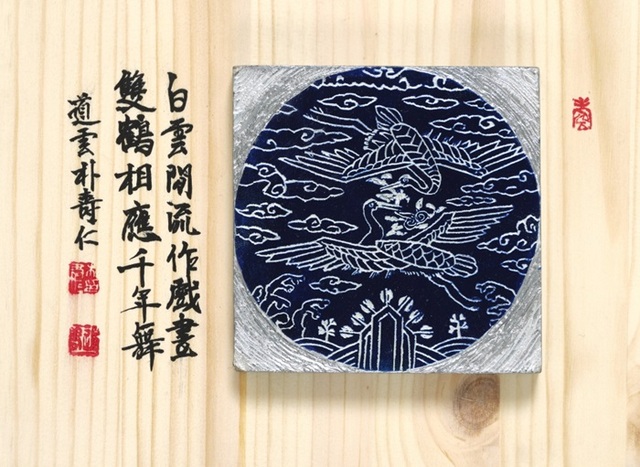 白雲閒流作戲畫
雙鶴相應千年舞
道雲朴壽仁